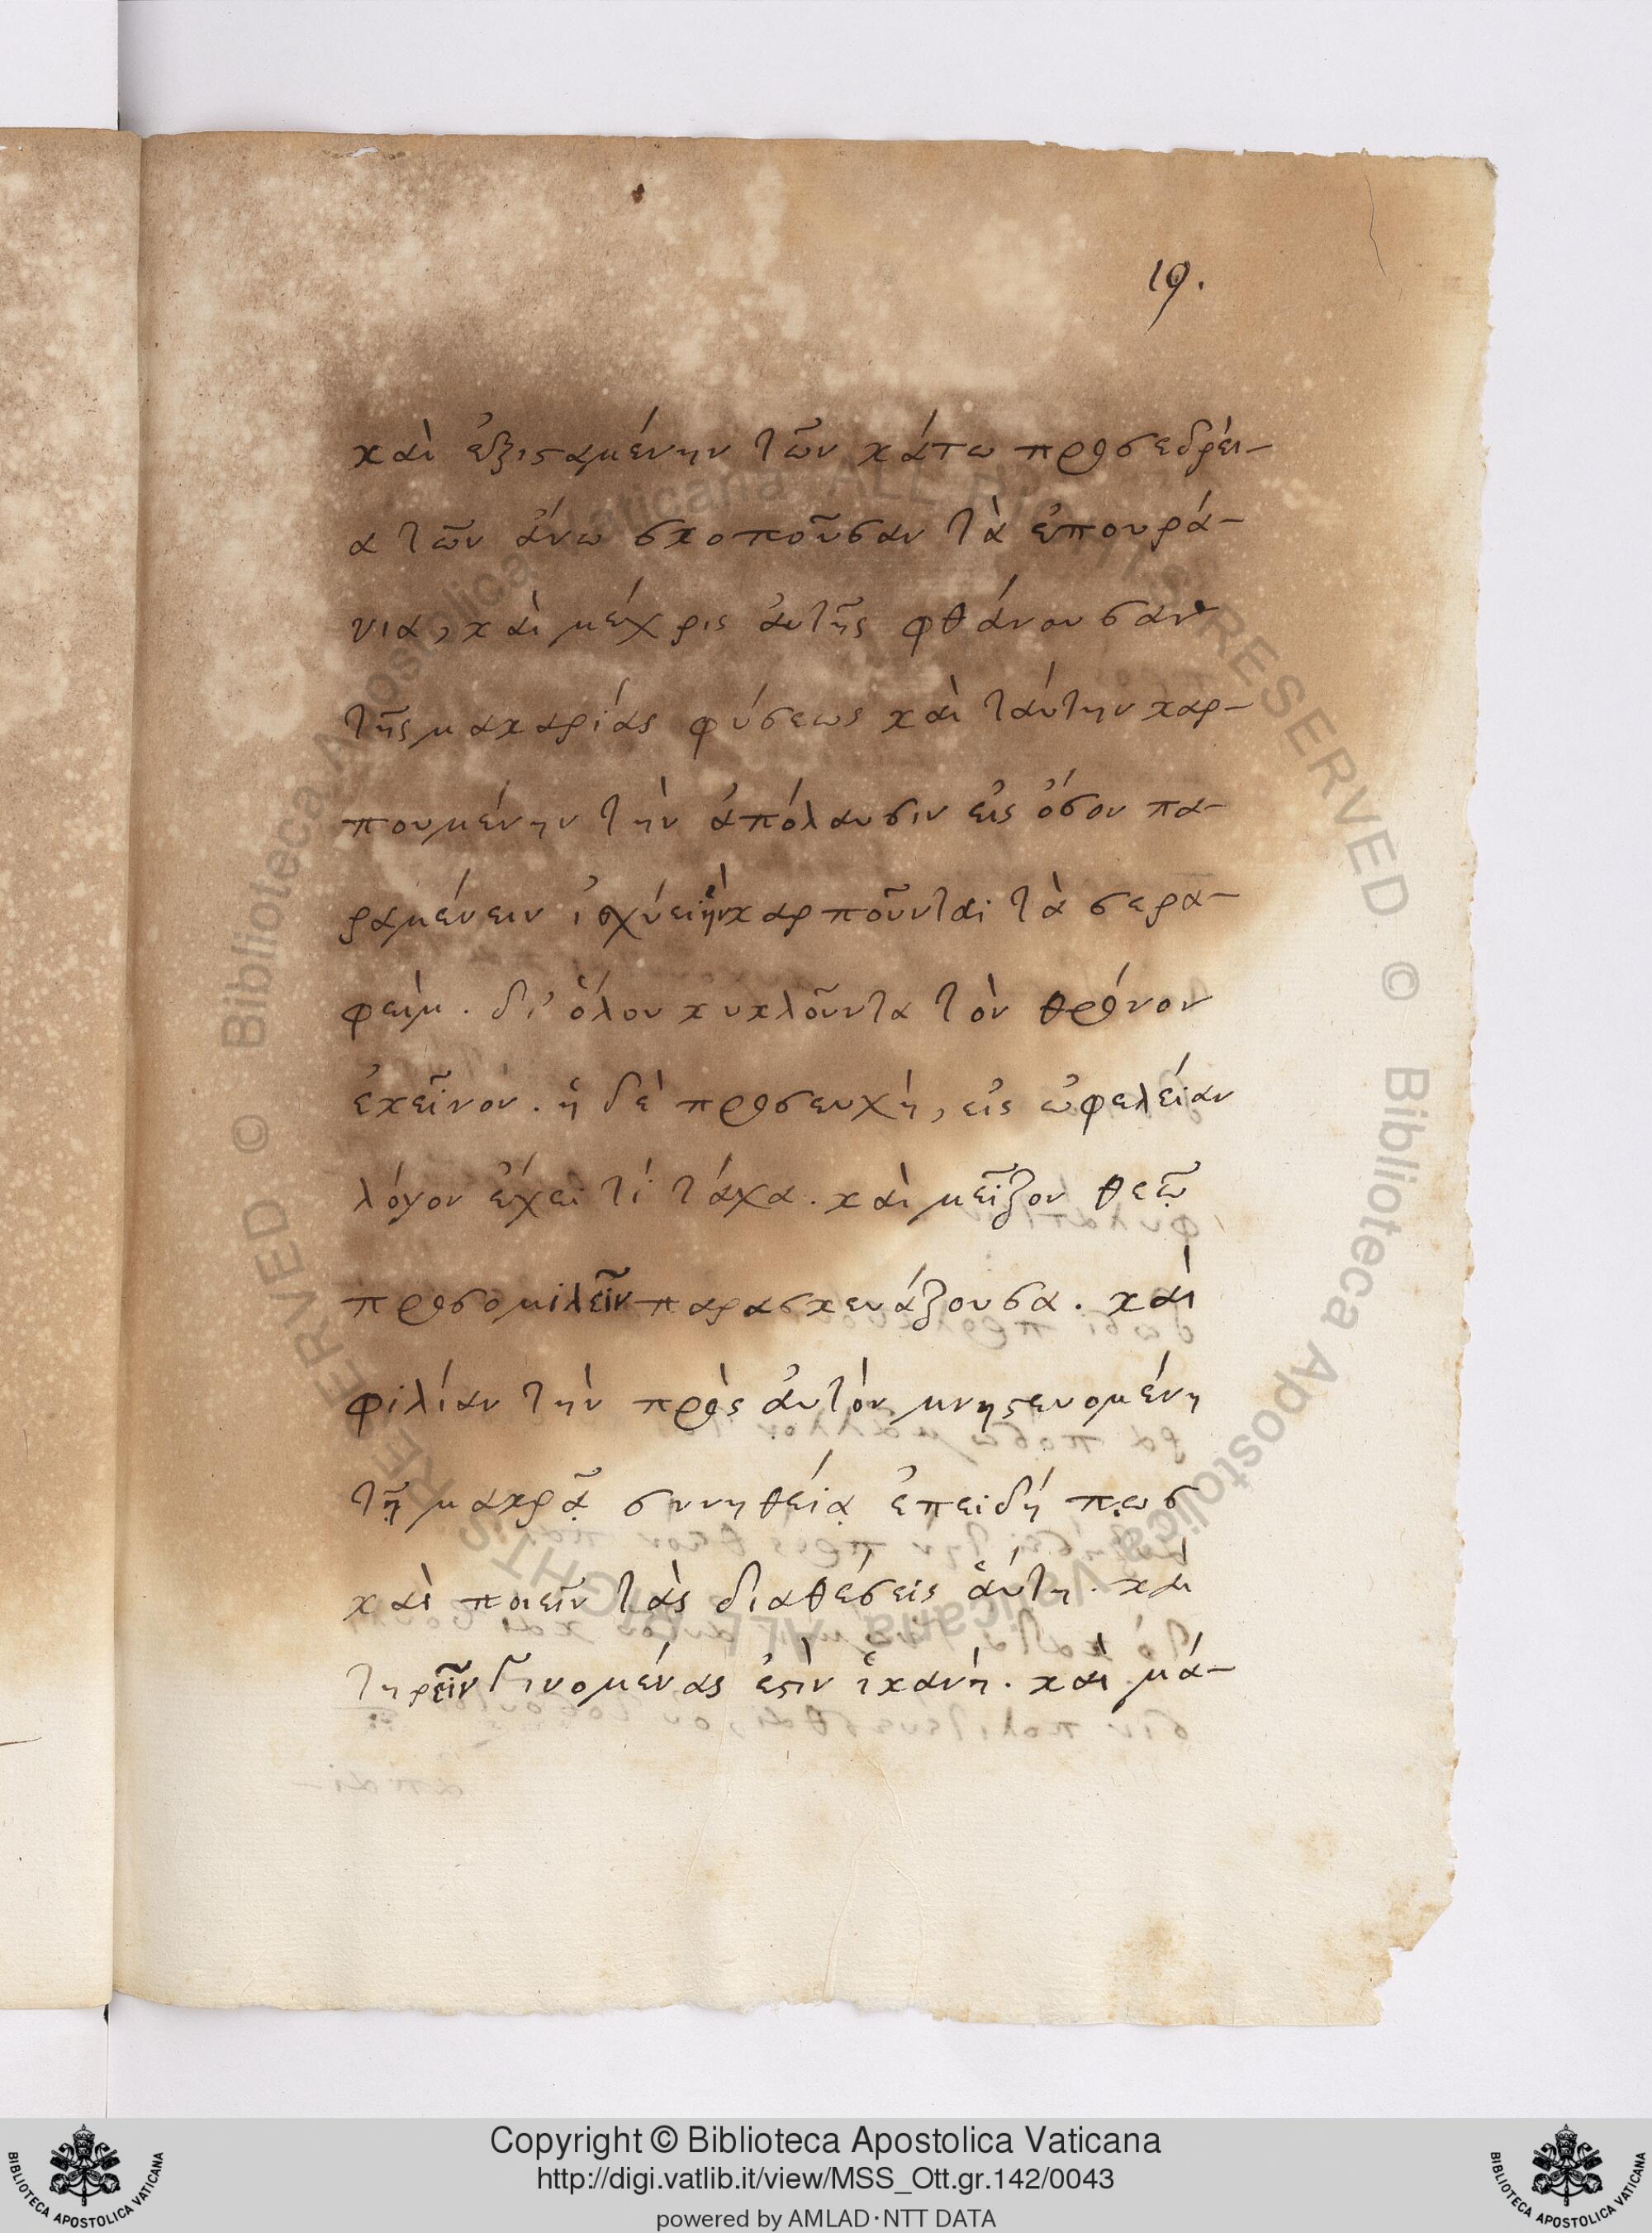 19.
καὶ ἐξισταμένην τῶν κάτω προσεδρεί-
α τῶν ἄνω σκοποῦσαν τὰ ἐπουρά-
νια, καὶ μέχρις αὐτῆς φθάνουσαν
τῆς μακαρίας φύσεως καὶ ταύτην καρ-
πουμένην τὴν ἀπόλαυσιν εἰς ὅσον πα-
ραμένειν ἰσχύει ἣν καρποῦνται τὰ σερα-
φεὶμ. δι' ὅλου κυκλοῦντα τὸν θρόνον
ἐκεῖνον. ἡ δὲ προσευχὴ, εἰς ὠφελείαν
λόγον ἔχει τί τάχα. καὶ μεῖζον θεῷ
προσομιλεῖν παρασκευάζουσα. καὶ
φιλίαν τὴν πρὸς ἀυτὸν μνηστευομένη
τῇ μακρᾷ συνηθείᾳ ἐπειδή πως
καὶ ποιεῖν τὰς διαθέσεις ἁύτη. και
τηρεῖν γινομένας ἐστὶν ἱκανή. καὶ μά-
Copyright © Biblioteca Apostolica Vaticana
http://digi.vatlib.it/view/MSS_Ott.gr.142/0043
powered by AMLAD·NTT DATA
BIBLIOTECA APOSTOLICA VATICANA
BIBLIOTECA APOSTOLICA VATICANA